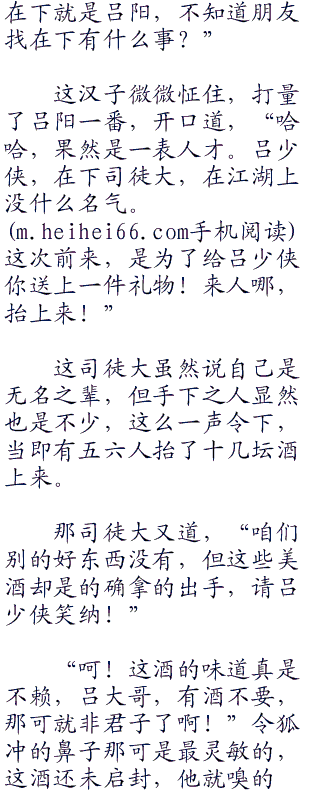 在下就是吕阳，不知道朋友
找在下有什么事？”
这汉子微微怔住，打量
了吕阳一番，开口道，“哈
哈，果然是一表人才。吕少
侠，在下司徒大，在江湖上
没什么名气。
(m.heihei66.com手机阅读)
这次前来，是为了给吕少侠
你送上一件礼物！来人哪，
抬上来！”
这司徒大虽然说自己是
无名之辈，但手下之人显然
也是不少，这么一声令下，
当即有五六人抬了十几坛酒
上来。
那司徒大又道，“咱们
别的好东西没有，但这些美
酒却是的确拿的出手，请吕
少侠笑纳！”
“呵！这酒的味道真是
不赖，吕大哥，有酒不要，
那可就非君子了啊！”令狐
冲的鼻子那可是最灵敏的，
这酒还未启封，他就嗅的